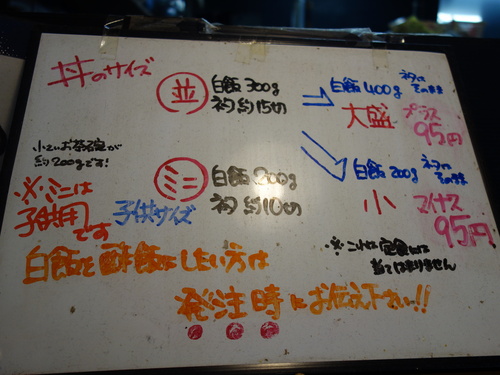 丼のサイズ
並 白飯 300g
ネタ 約15切
白飯 400g ネタは
そのまま
大盛 プラス
95円
小さいお茶碗が
約200gです!
ミニ 白飯 200g
ネタ 約10切
子供サイズ
白飯 200g ネタは
そのまま
小 マイナス
95円
※ミニは
子供用
です
※これは定食には
当てはまりません
白飯を酢飯にしたい方は
発注時にお伝え下さい!!